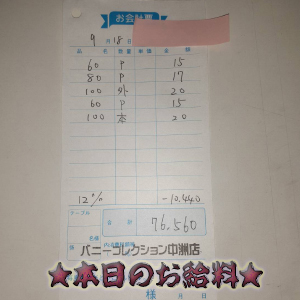 お会計票
9月18日
品名 数量 単価 金額
60 P 15
80 P 17
100 外 20
60 P 15
100 本 20
12% -10,440
テーブル
名様
合計 76,560
バニーコレクション中洲店
★本日のお給料★
様 月 日